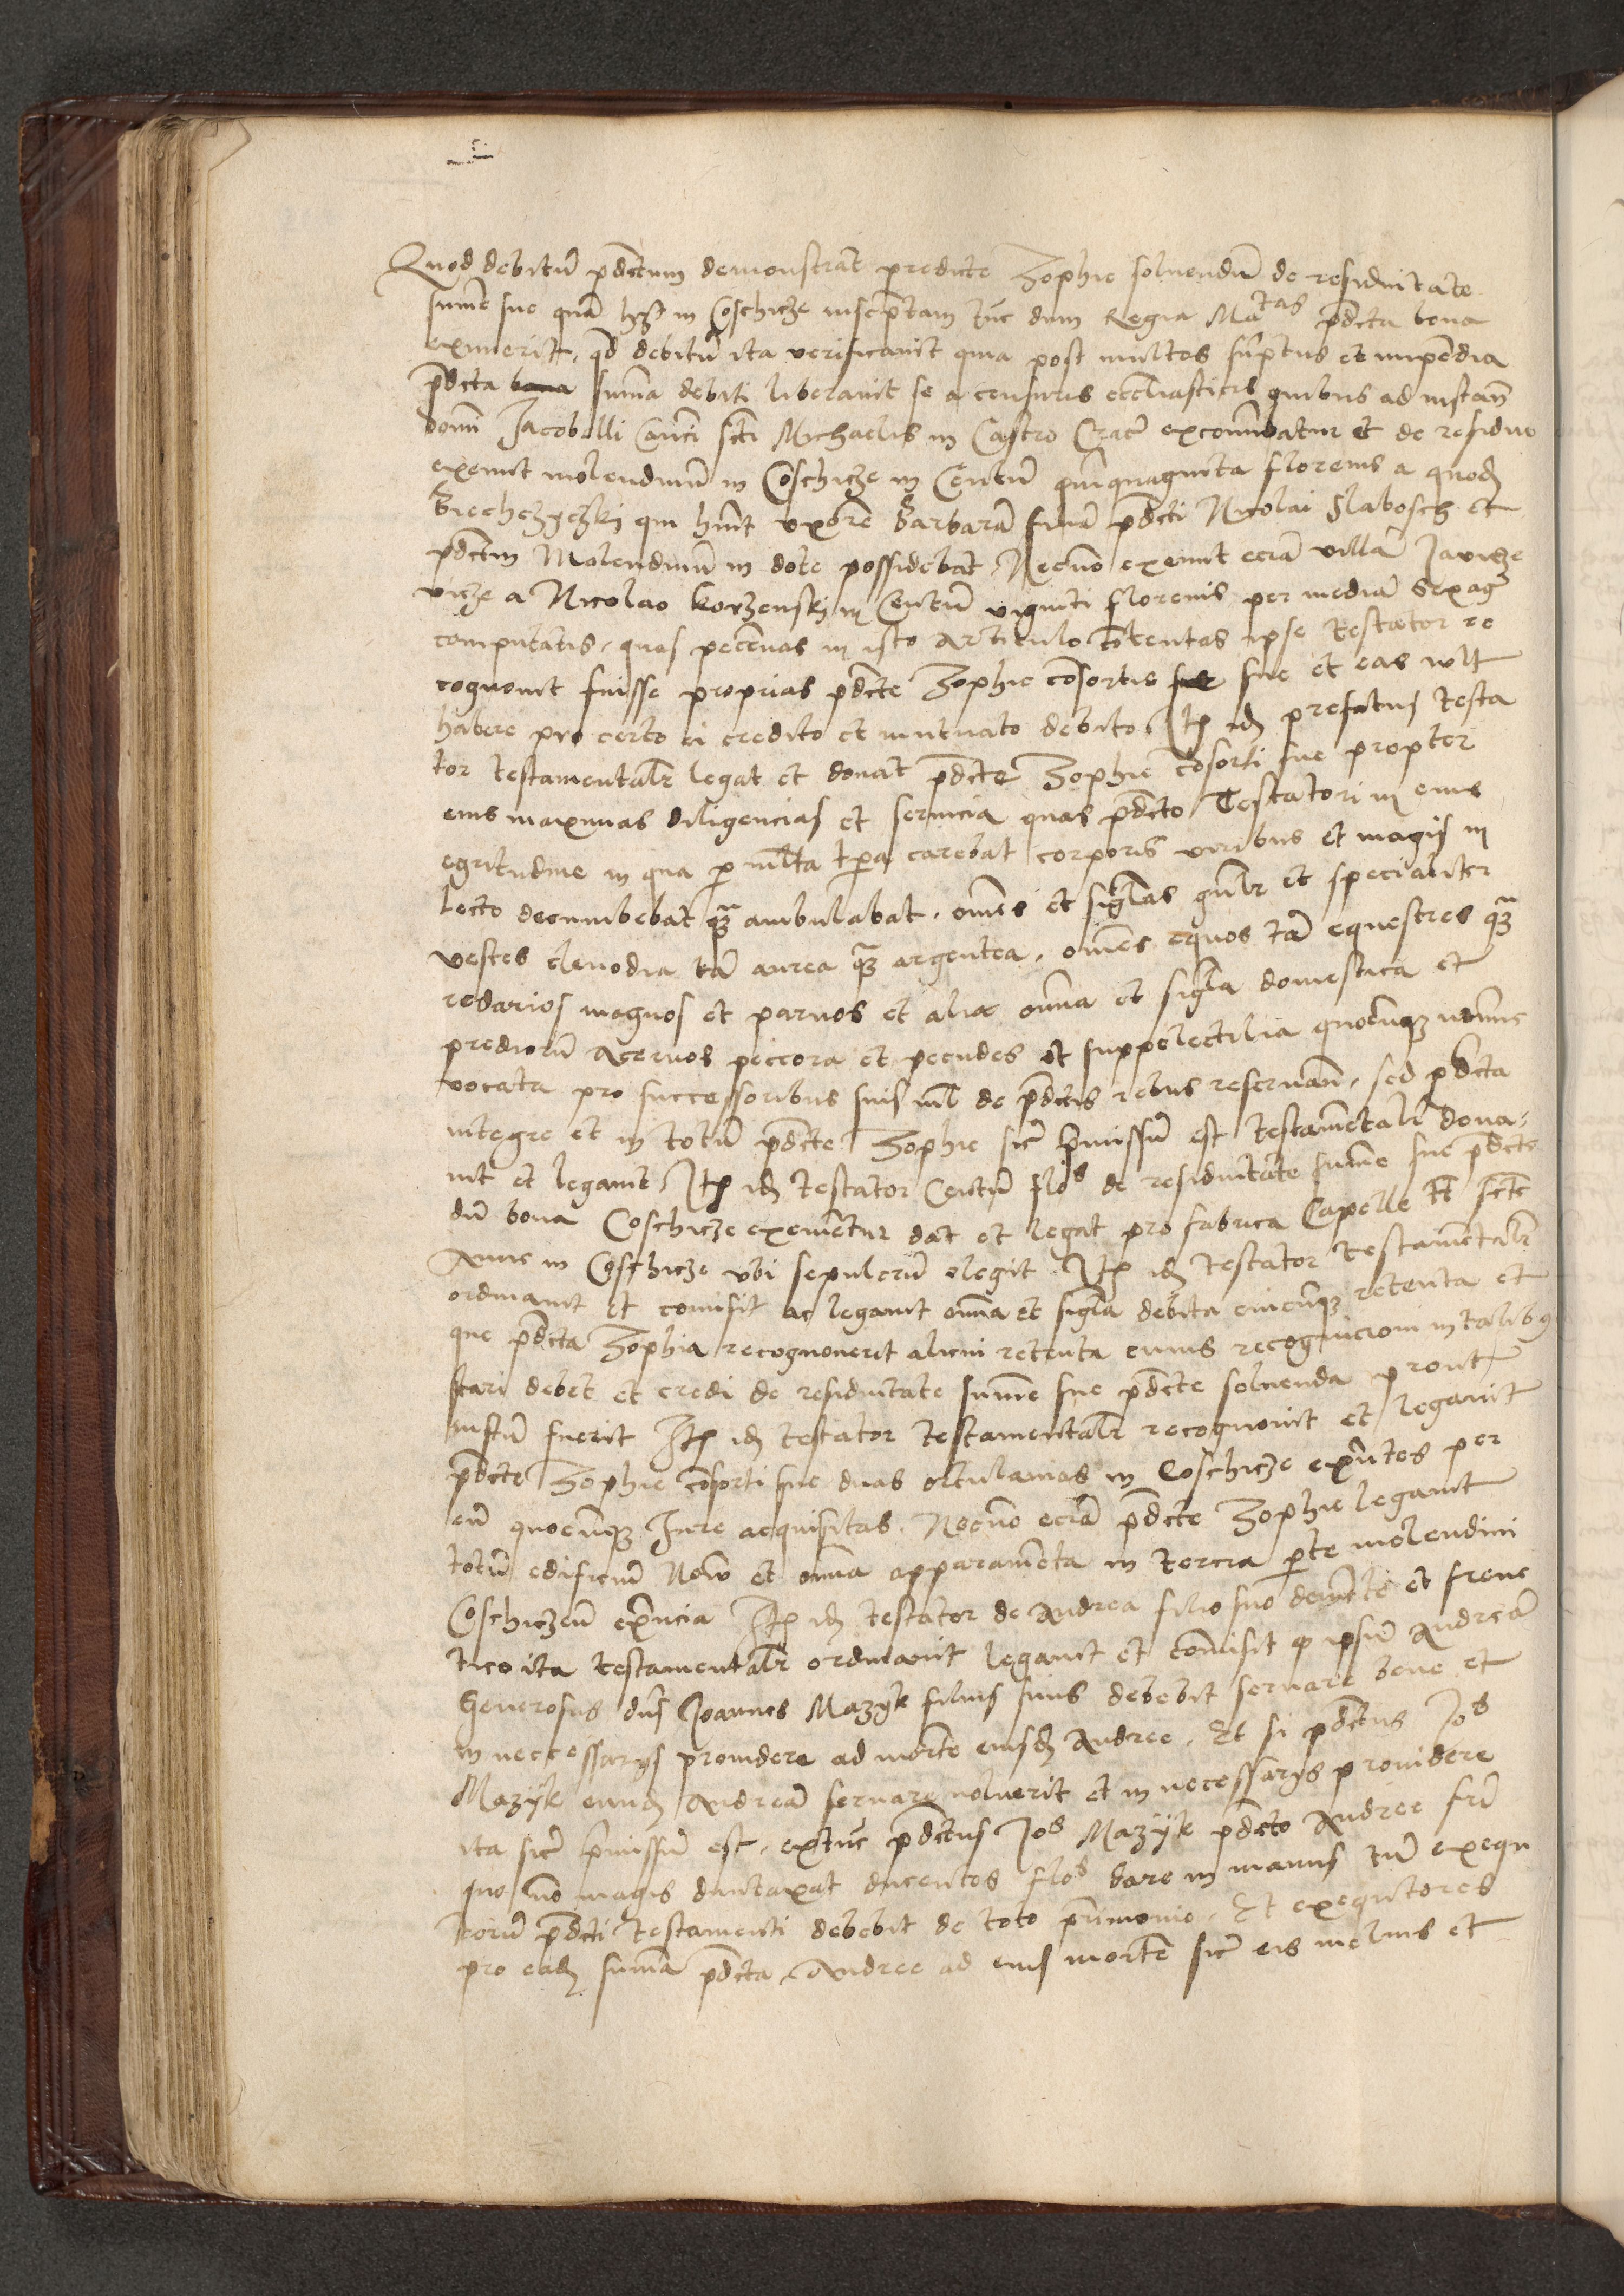 Quod debitu̅ p̅dictum demonstrat predicte Zophie soluendu̅ de residuitate
sum̅e sue qua̅ h̅z in Coschicze inscrip̅tam tu̅c dum Regia Ma^tas p̅dcta bona
exmerit, q̅d debitu̅ ita verificauit quia post multos su̅ptus et impe̅dia
p̅dcta su̅ma debiti liberauit se a censuris eccl̅iasticis quibus ad instan̅
domi̅ Jacobelli Can̅ci s̅cti Michaelis in Castro Crac̅ exco̅m̅batur et de residuo
exemit molendinu̅ in Coschicze in Centu̅ quinquaginta florenis a quod̅
qui h̅uit vxore̅ Barbara̅ filia̅ p̅dcti Nicolai Slabosch et
p̅dctm Molendinu̅ in dote possidebat, Necno̅ exemit ecia̅ villa̅ Jawicze
vicze a Nicolao Korzenskj in Centu̅ viginti florenis per media̅ sexag̅
computatis, quas pecu̅ias in isto articulo co̅tentas ipse Testator re
cognouit fuisse proprias p̅dcte Zophie co̅sortis sue et eas vult
habere pro certo ei credito et mutuato debito Ite̅ id̅ prefatus testa
tor testamentalr̅ legat et donat p̅dcte Zophie co̅sorti sue propter
eius maximas diligencias et seruicia quas p̅dcto Testatori in eius
egritudine in qua p̅ m̅lta t̅pa carebat corporis viribus et magis in
lecto decumbebat q̅ ambulabat, om̅es et sig̅las gn̅lr et specialiter
vestes clenodia ta̅ aurea q̅ argentea, om̅es equos ta̅ equestres q̅
redarios magnos et paruos et alia om̅ia et sig̅la domestica et
predioru̅ acernos peccora et pecudes et suppelectilia quocu̅q̅ no̅i̅e
vocata pro successoribus suis nil̅ de p̅dctis rebus reseruan̅, sed p̅dcta
integre et in totu̅ p̅dcte Zophie sic̅ p̅missu̅ est testame̅talr̅ dona-
uit et legauit, Ite̅ id̅ testator Centu̅ flo^s de residuitate sum̅e sue p̅dcte
du̅ bona Coschicze exeme̅tur dat et legat pro fabrica Capelle s̅cte
Anne in Coschicze vbi sepulcru̅ elegit. Ite̅ id̅ testator testame̅talr̅
ordinauit et co̅misit ac legauit om̅ia et sig̅la debita cuicu̅q̅ retenta et
que p̅dcta Zophia recognouerit alicui retenta cuius recognicioni in talib9
stari debet et credi de residuitate sum̅e sue p̅dcte soluenda prout
iustu̅ fuerit Ite̅ id̅ testator testamentalr̅ recognouit et legauit
p̅dcte Zophie co̅sorti sue duas ortulanias in Coschicze exn̅tes per
eu̅ quocu̅q̅ Jure acquisitas. Necno̅ ecia̅ p̅dcte Zophie legauit
totu̅ edificiu̅ Nou̅ et om̅ia apparame̅ta in tercia p̅te molendini
Coschiczen̅ exn̅cia Ite̅ id̅ testator de Andrea filio suo deme̅te et frene
tico ita testamentalr̅ ordinauit legauit et co̅misit q̅ ipsu̅ Andrea̅
Generosus dn̅s Joannes Mazÿk filius suus debebit seruare bene et
in neccessarijs prouidere ad morte̅ eiusd̅ Andree, Et si p̅dctus Jo^s
Mazÿk eund̅ Andrea̅ seruare noluerit et in necessarijs prouidere
ita sic̅ p̅missu̅ est, extu̅c p̅dctus Jo^s Mazÿk p̅dcto Andree fr̅i
suo no̅ magis duntaxat ducentos flo^s dare in manus exequ
toru̅ p̅dcti testamenti debebit de toto p̅rimonio, Et exequtores
pro ead̅ su̅ma p̅dcta Andree ad eius morte̅ sic̅ eis melius et